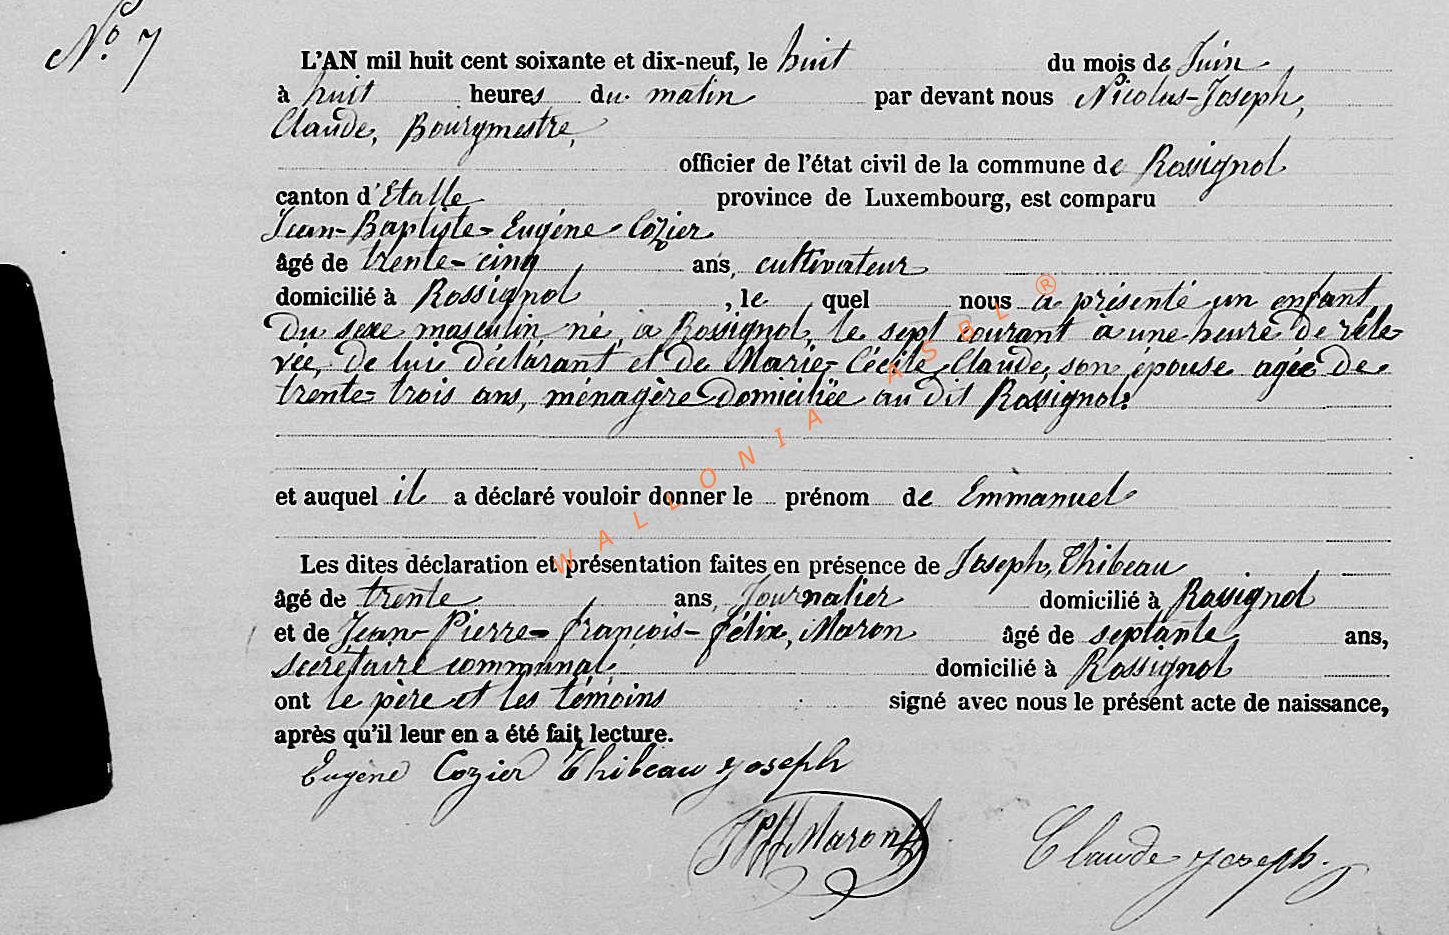 N° 7
L'AN mil huit cent soixante et dix-neuf, le huit du mois de Juin
à huit heures du matin par devant nous Nicolas-Joseph,
Claude, Bourgmestre,
officier de l'état civil de la commune de Rossignol
canton d'Etalle province de Luxembourg, est comparu
Jean-Baptiste-Eugène Cozier
âgé de trente-cinq ans, cultivateur
domicilié à Rossignol, le quel nous a présenté un enfant
du sexe masculin, né à Rossignol, le sept courant à une heure de rele-
vée, de lui déclarant et de Marie-Cécile Claude, son épouse agée de
trente-trois ans, ménagère domiciliée au dit Rossignol.
et auquel il a déclaré vouloir donner le prénom de Emmanuel
Les dites déclaration et présentation faites en présence de Joseph, Thibeau
âgé de trente ans, Journalier domicilié à Rossignol
et de Jean-Pierre-françois-félix, Maron âgé de septante ans,
secrétaire communal, domicilié à Rossignol
ont le père et les témoins signé avec nous le présent acte de naissance,
après qu'il leur en a été fait lecture.
Eugène Cozier Thibeau Joseph
Maron
Claude Joseph.
WALLONIA ASBL ®